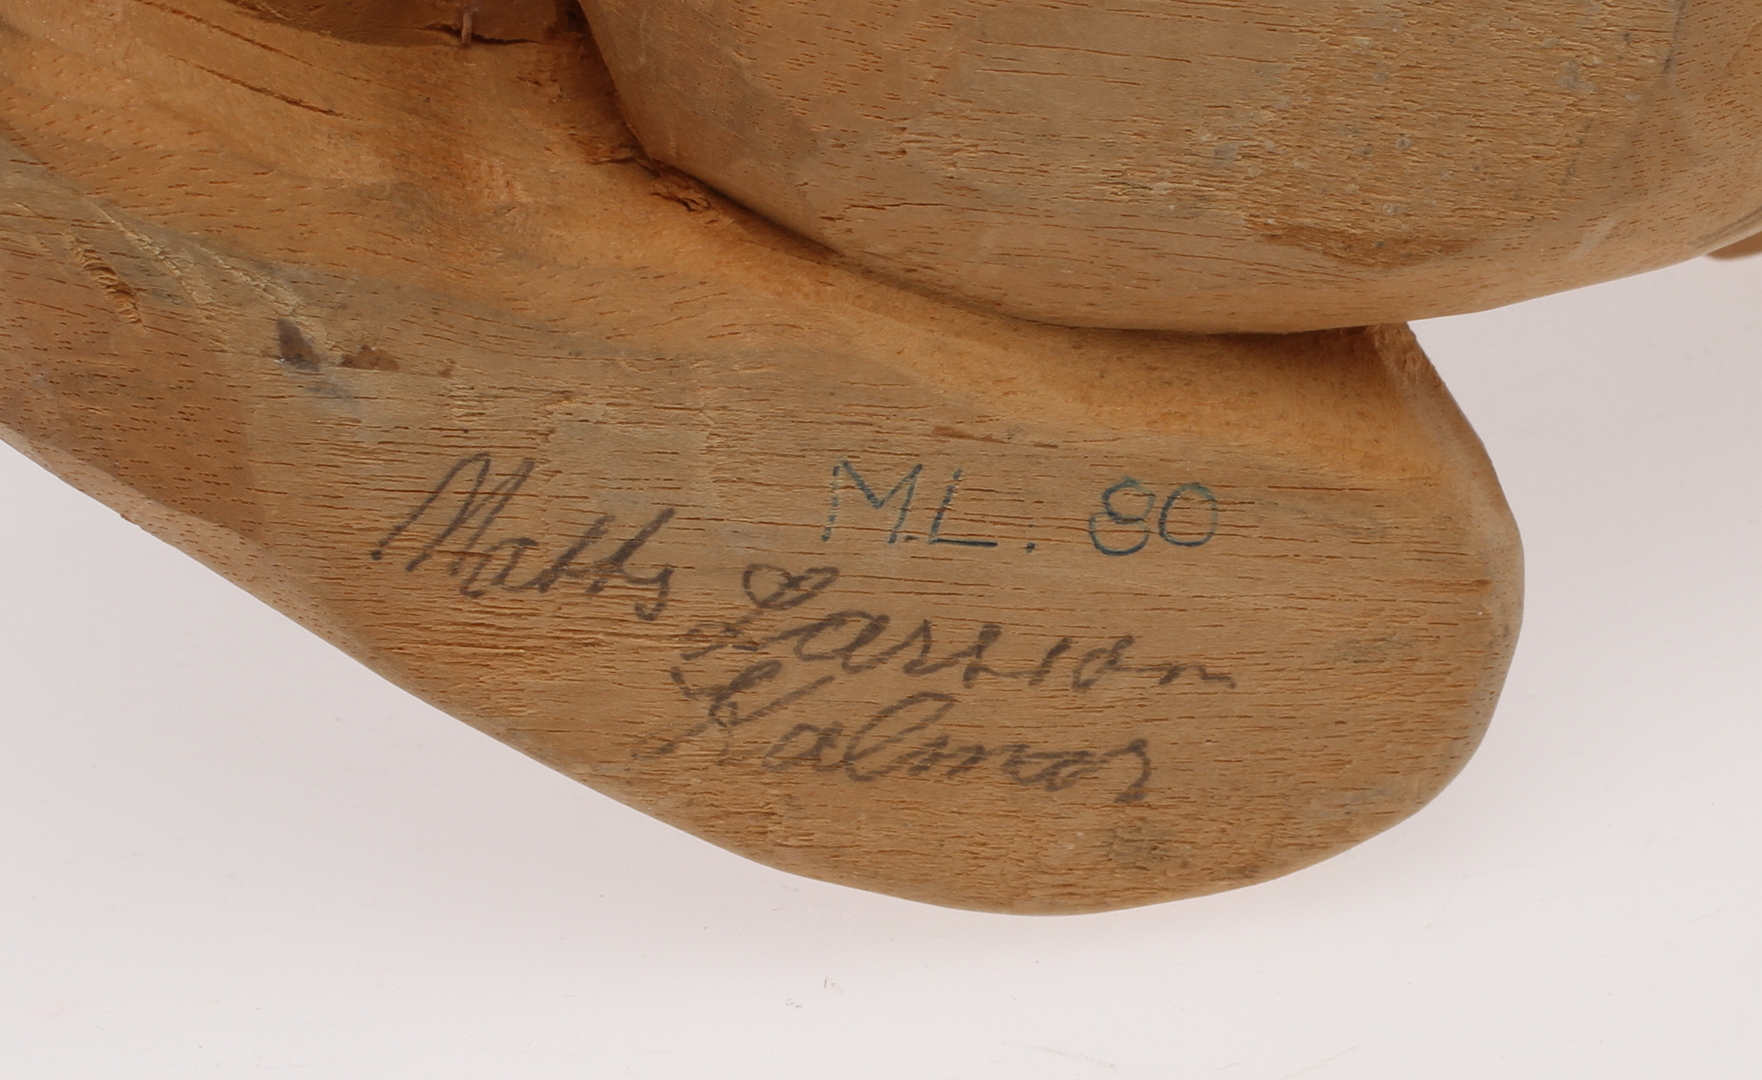 M.L. 80
Matts Larsson
Kalmar